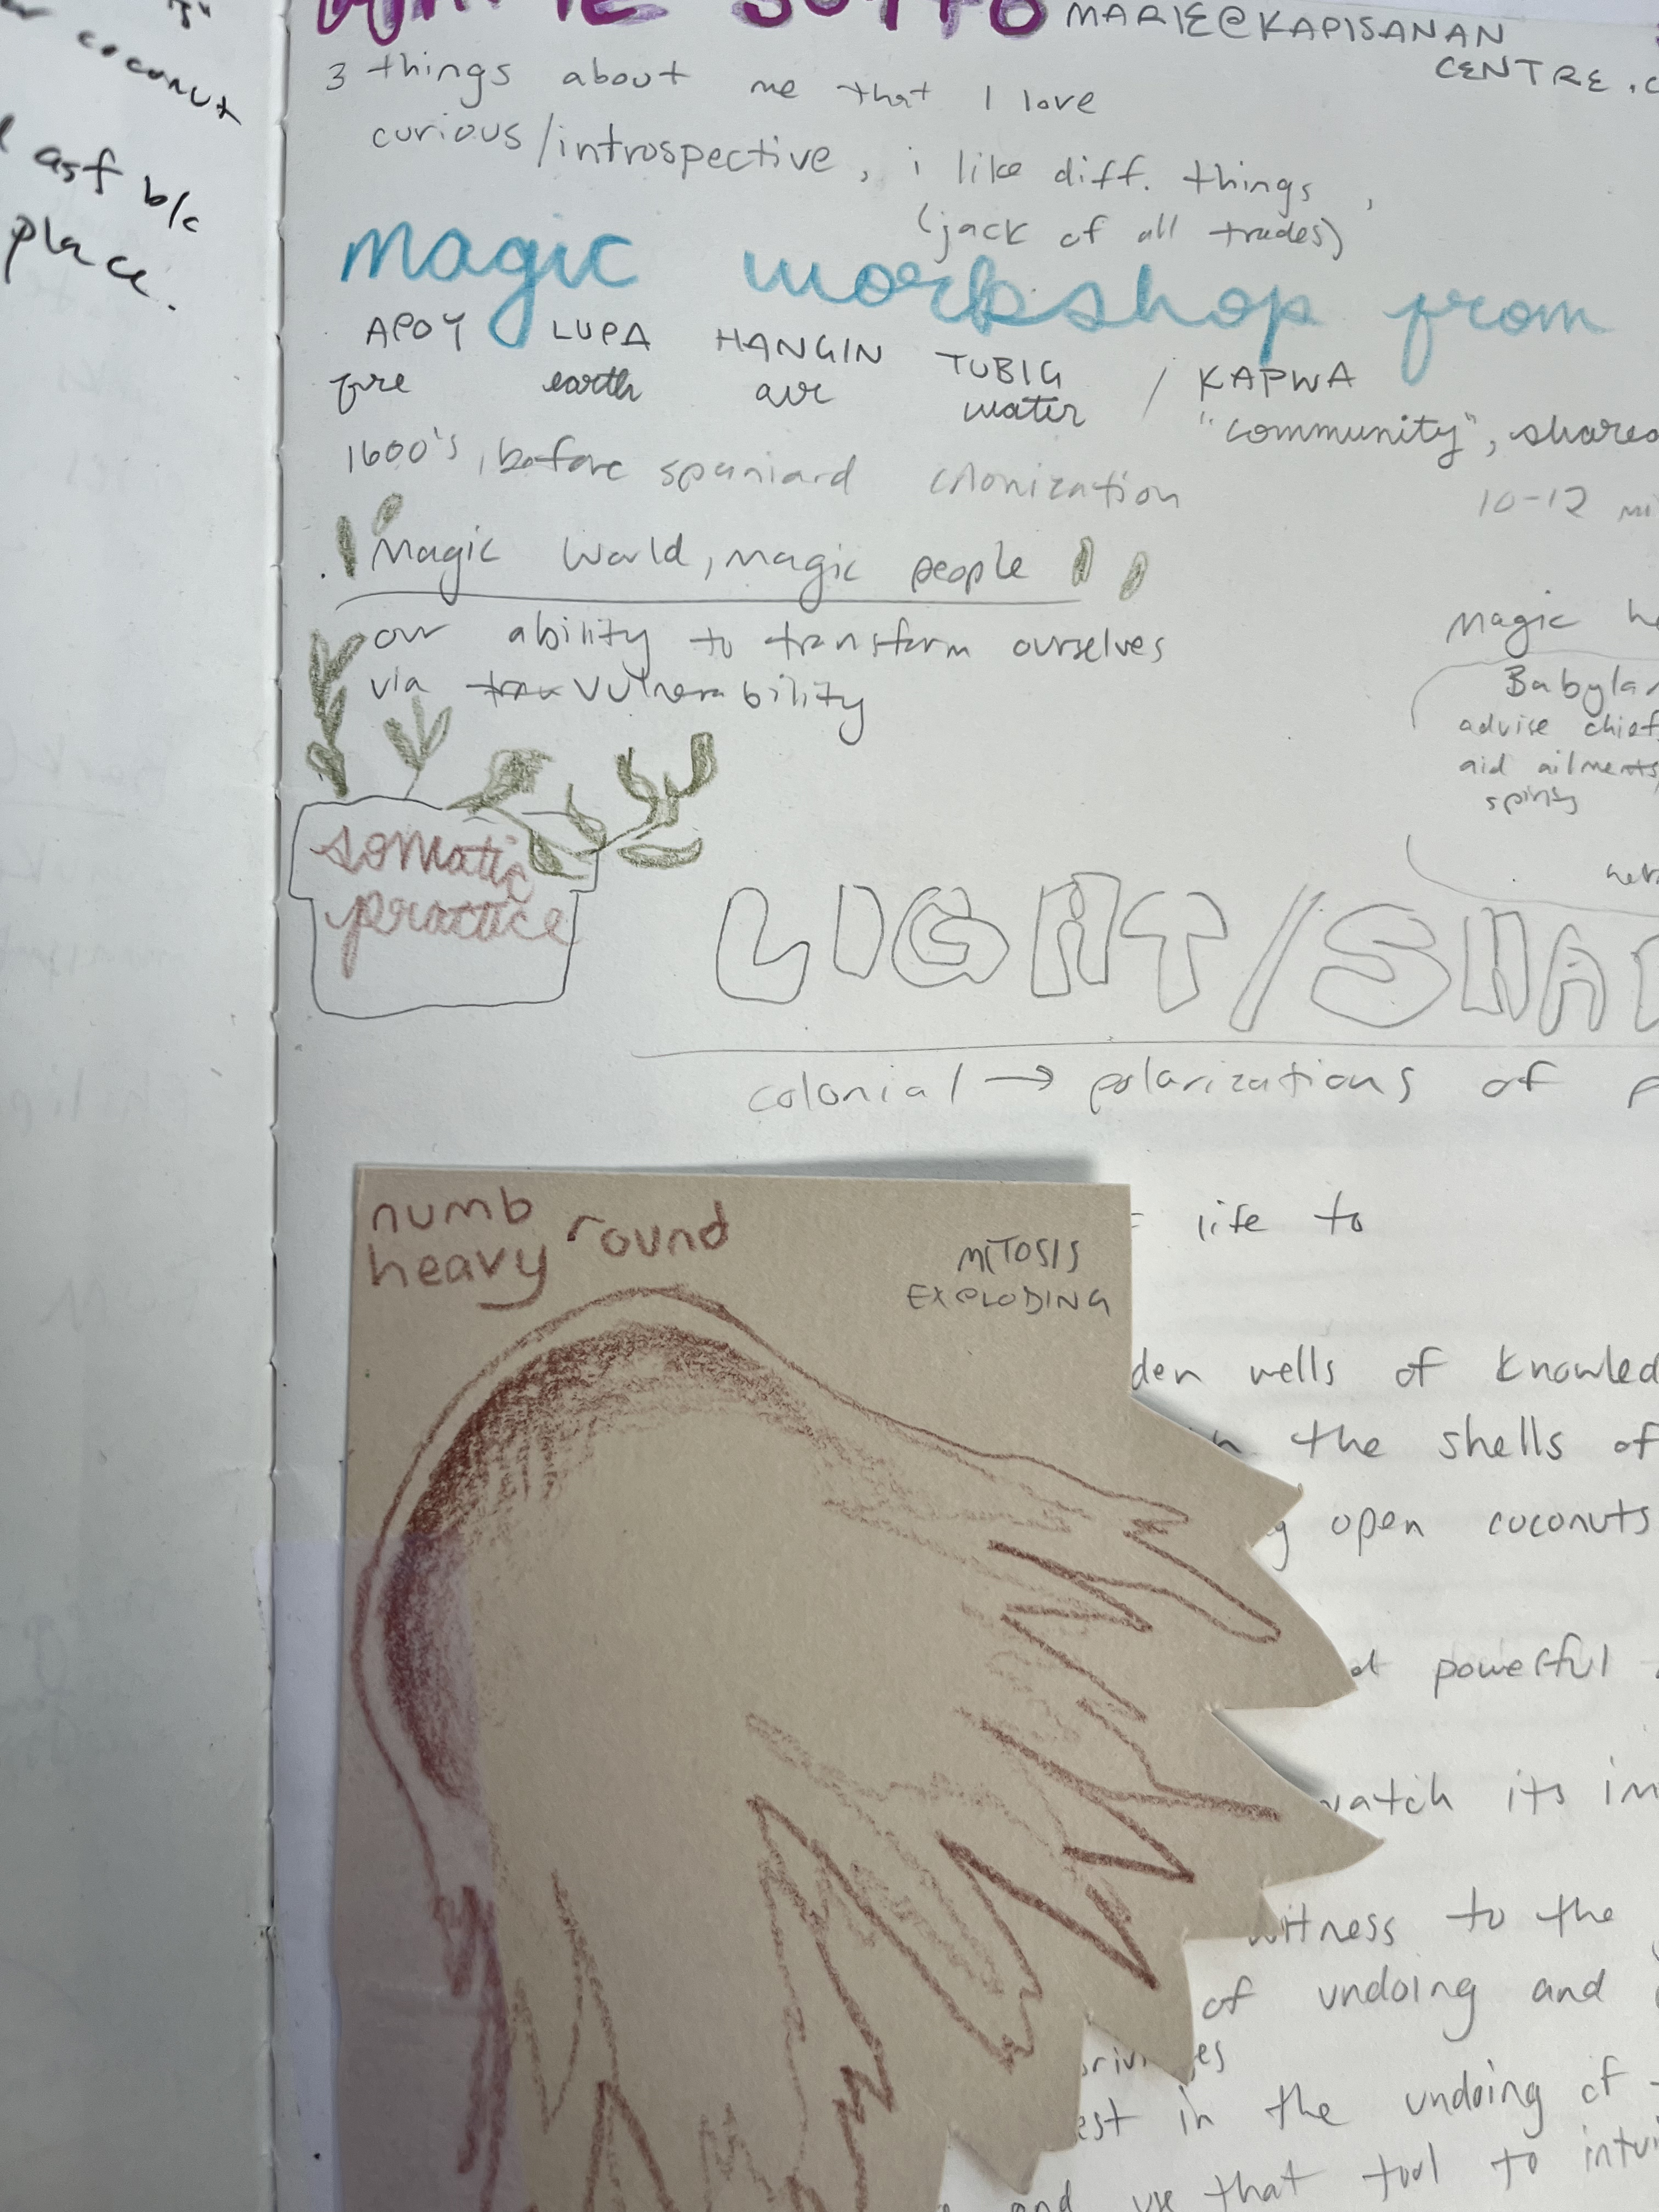 coconut
asf b/c
place.
MARIE@KAPISANAN
CENTRE.C
3 things about me that I love
curious/introspective, i like diff. things,
(jack of all trades)
magic workshop from
APOY LUPA HANGIN TUBIG / KAPWA
fire earth air water "community", shared
1600's, before spaniard colonization
10-12
magic world, magic people
our ability to transform ourselves
via vulnerability
magic
Babylan
advise chief
aid ailments,
spirits
somatic
practice
LIGHT/SHA
colonial → polarizations of
numb round
heavy
MITOSIS
EXPLODING
life to
den wells of knowled
in the shells of
g open coconuts
powerful
watch its im
witness to the
of undoing and
est in the undoing of
and use that tool to intui